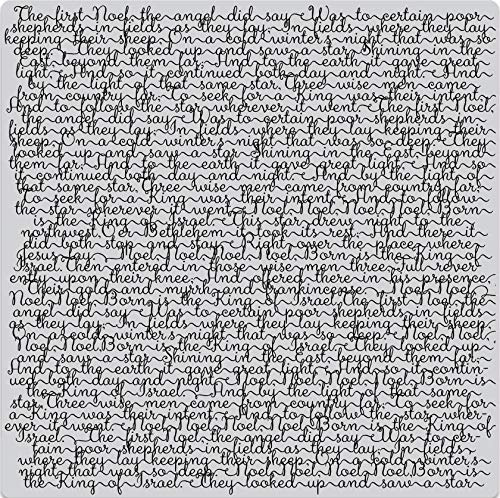 The first Noel, the angel did say Was to certain poor
shepherds in fields as they lay In fields where they lay
keeping their sheep On a cold winter's night that was so
deep. They looked up and saw a star Shining in the
East beyond them far And to the earth it gave great
light And so it continued both day and night And
by the light of that same star Three wise men came
from country far To seek for a King was their intent
And to follow the star wherever it went The first Noel
the angel did say Was to certain poor shepherds in
fields as they lay In fields where they lay keeping their
sheep On a cold winter's night that was so deep They
looked up and saw a star Shining in the East beyond
them far And to the earth it gave great light And so
it continued both day and night And by the light of
that same star Three wise men came from country far
To seek for a King was their intent And to follow
the star wherever it went Noel Noel Noel Noel Born
is the King of Israel This star drew night to the
northwest O'er Bethlehem it took its rest And there it
did both stop and stay Right over the place where
Jesus lay Noel Noel Noel Noel Born is the King of
Israel Then entered in those wise men three Full rever-
ently upon their knee And offered there in his presence
Their gold and myrrh and frankincense Noel Noel
Noel Noel Born is the King of Israel The first Noel the
angel did say Was to certain poor shepherds in fields
as they lay In fields where they lay keeping their sheep
On a cold winter's night that was so deep Noel Noel
Noel Noel Born is the King of Israel They looked up
and saw a star Shining in the East beyond them far
And to the earth it gave great light And so it contin-
ued both day and night Noel Noel Noel Noel Born is
the King of Israel And by the light of that same
star Three wise men came from country far To seek for
a King was their intent And to follow the star wher-
ever it went Noel Noel Noel Noel Born is the King of
Israel The first Noel the angel did say Was to cer-
tain poor shepherds in fields as they lay In fields
where they lay keeping their sheep On a cold winter's
night that was so deep Noel Noel Noel Noel Born is
the King of Israel They looked up and saw a star